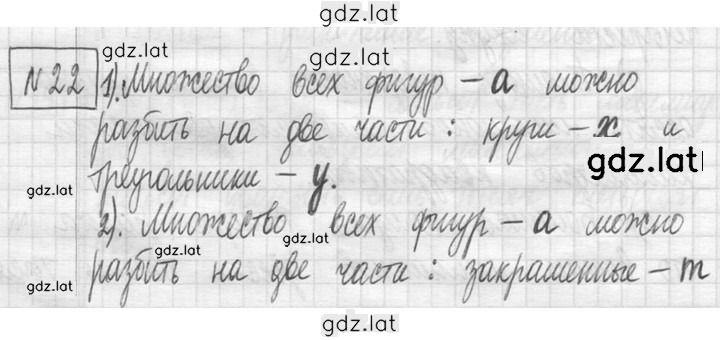 gdz.lat
gdz.lat
gdz.lat
№ 22 1). Множество всех фигур – a можно
разбить на две части: круги – x и
gdz.lat
треугольники – y.
gdz.lat
2). Множество всех фигур – a можно
gdz.lat
gdz.lat
разбить на две части: закрашенные – m
gdz.lat
gdz.lat